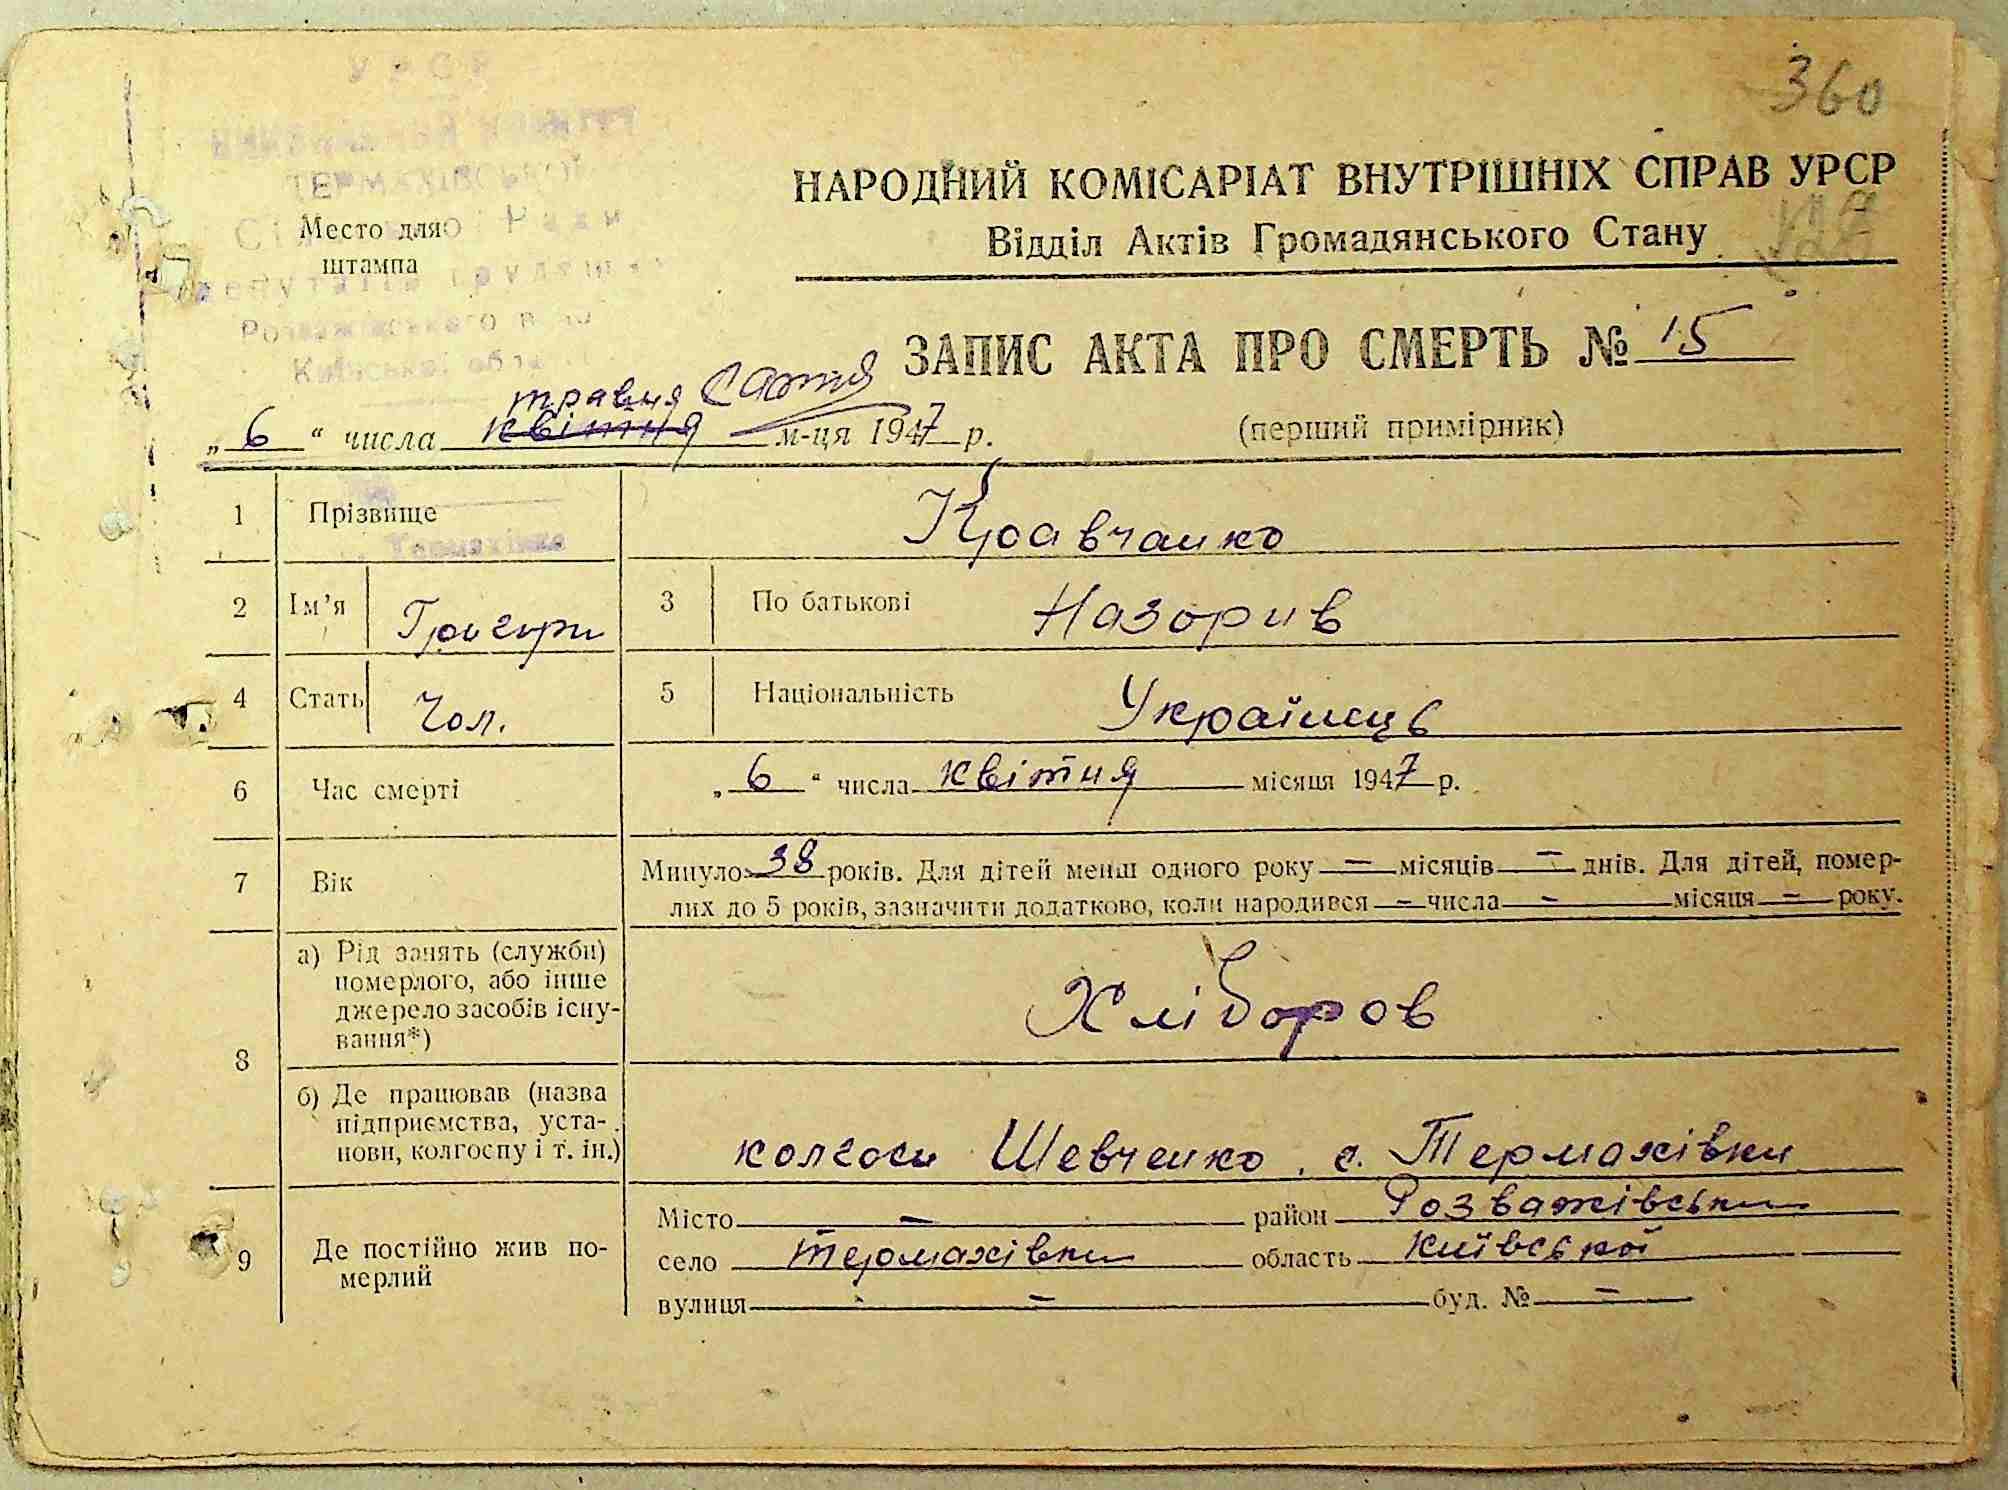 360
УРСР
ВИКОНАВЧИЙ КОМІТЕТ
ТЕРМАХІВСЬКОЇ
Сільської Ради
депутатів трудящих
Розважівського р-ну
Київської обл.
Место для
штампа
НАРОДНИЙ КОМІСАРІАТ ВНУТРІШНІХ СПРАВ УРСР
Відділ Актів Громадянського Стану
ЗАПИС АКТА ПРО СМЕРТЬ № 15
(перший примірник)
травня
„ 6 “ числа квітня м-ця 1947 р.
1 Прізвище Кравчанко
с. Термахівка
2 Ім’я Григори 3 По батькові Назорив
4 Стать Чол. 5 Національність Українець
6 Час смерті „ 6 “ числа квітня місяця 1947 р.
7 Вік Минуло 38 років. Для дітей менш одного року — місяців — днів. Для дітей, помер-
лих до 5 років, зазначити додатково, коли народився — числа — місяця — року.
8 а) Рід занять (служби)
померлого, або інше
джерело засобів існу-
вання*) Хліборов
б) Де працював (назва
підприємства, уста-
нови, колгоспу і т. ін.) колгосп Шевченко с. Термахівки
9 Де постійно жив по-
мерлий
Місто — район Розважівськи
село Термахівки область Київської
вулиця — буд. № —